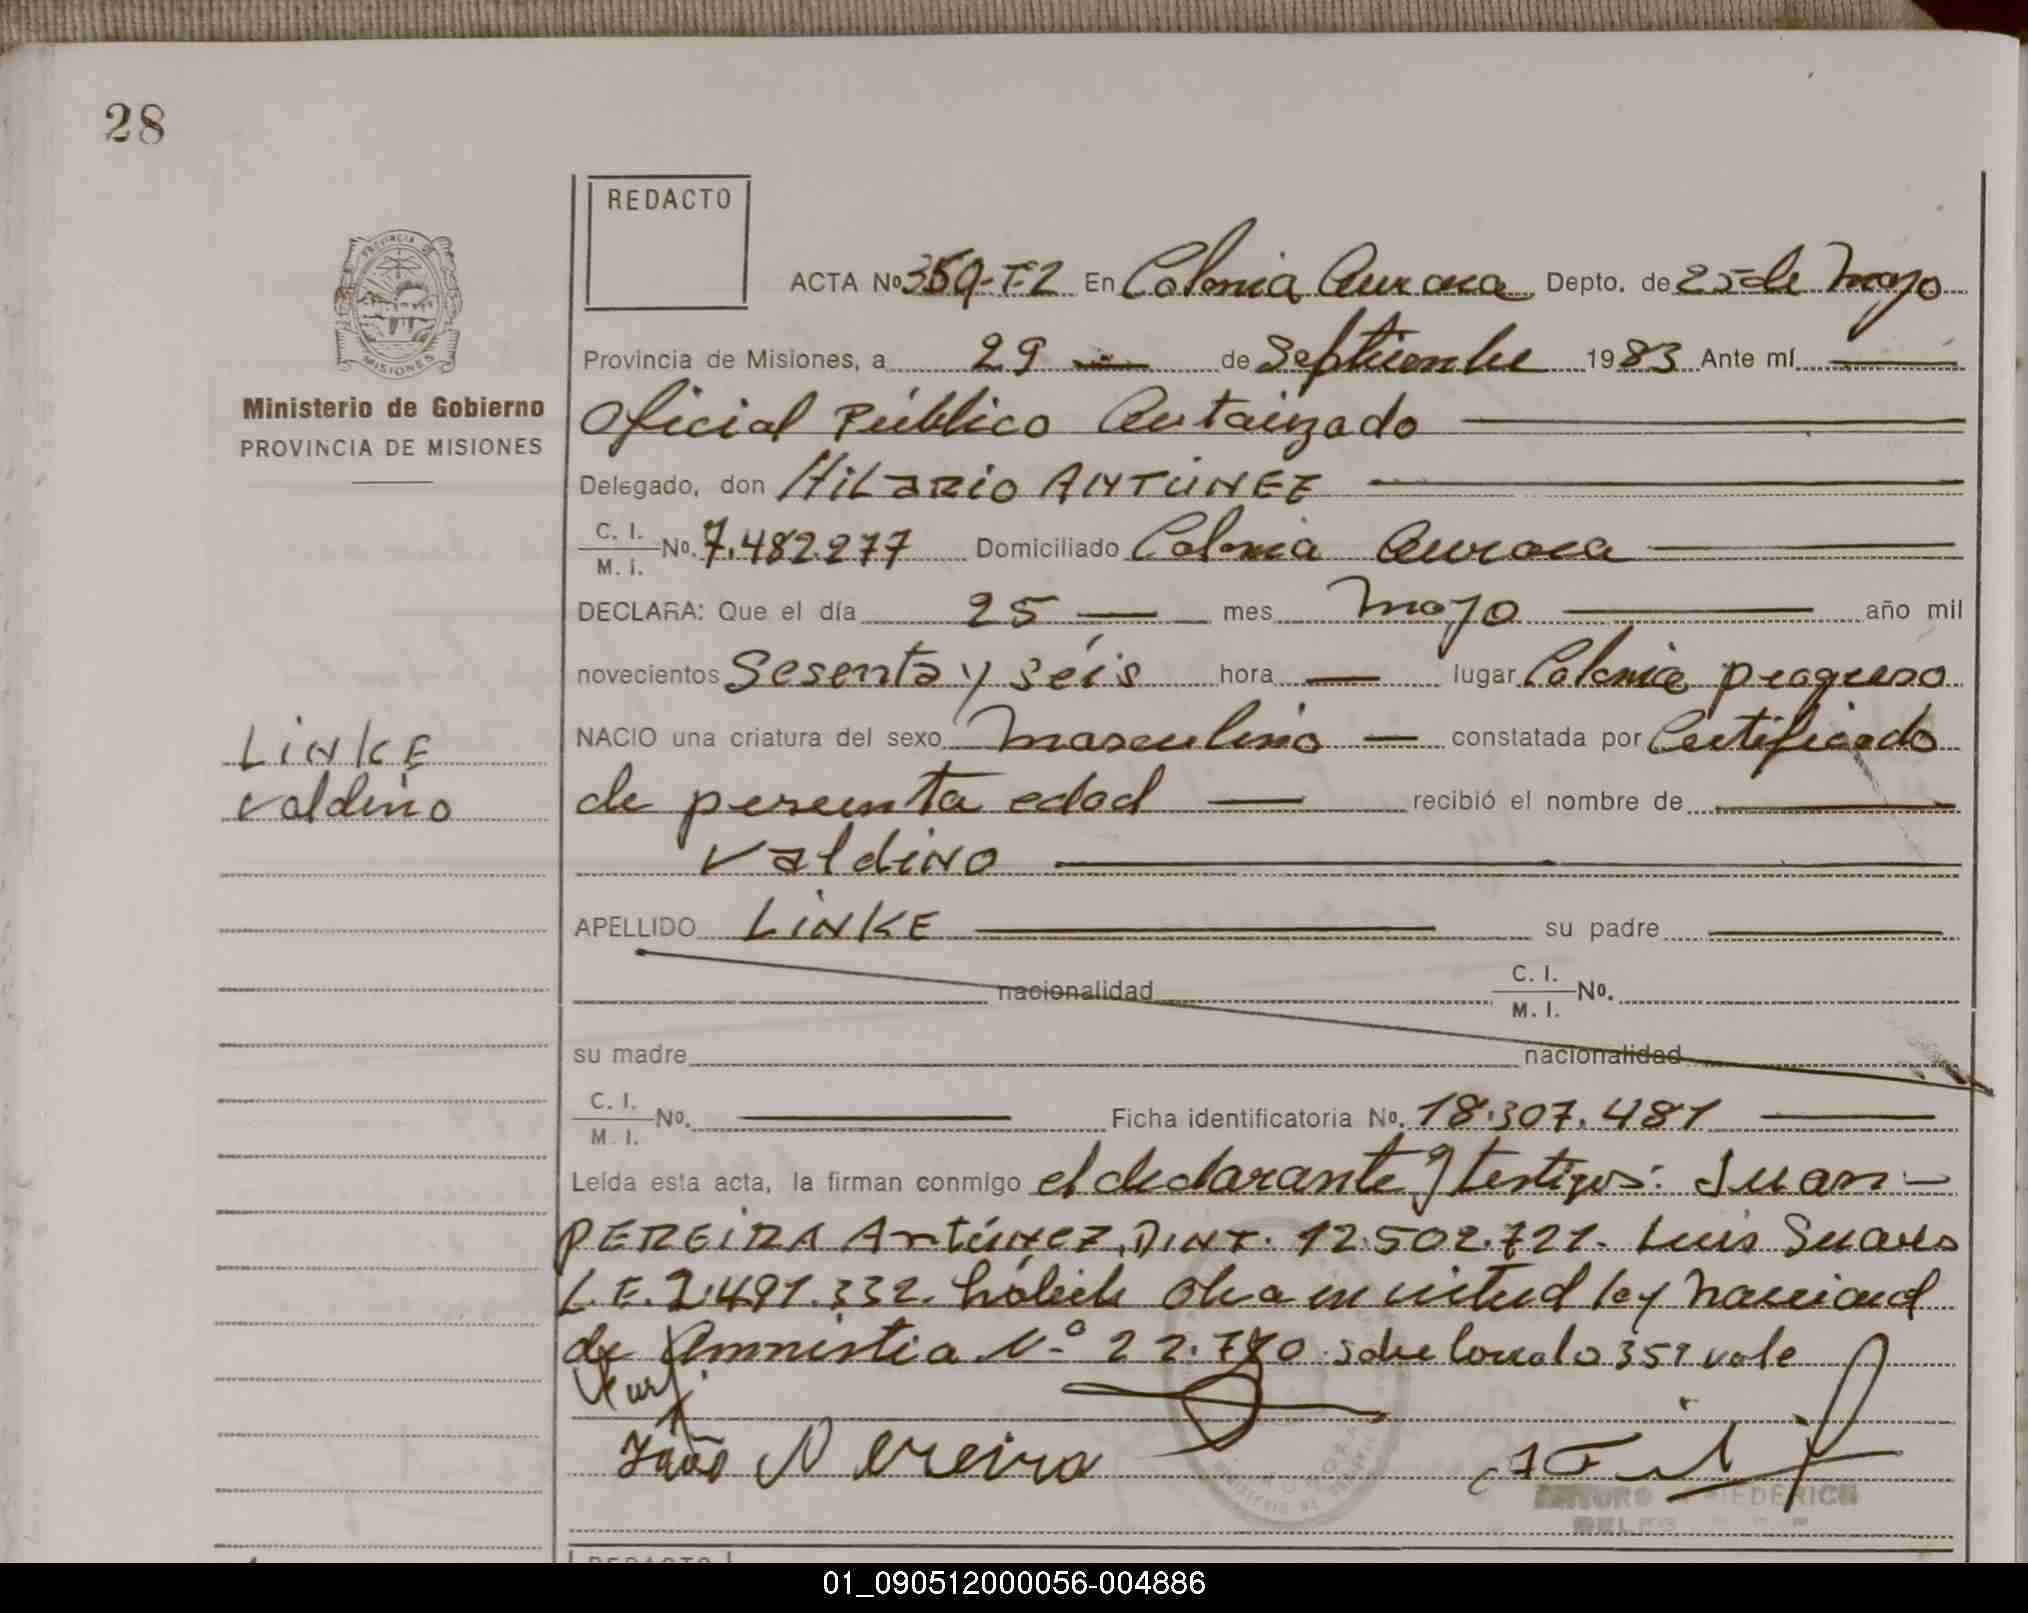 28
REDACTO
ACTA Nº 359-T-2 En Colonia Aurora Depto. de 25 de Mayo
Provincia de Misiones, a 29 de Septiembre 1983 Ante mí
Ministerio de Gobierno
PROVINCIA DE MISIONES
Oficial Público Autorizado
Delegado, don Hilario ANTÚNEZ
C. I. / M. I. No. 7.482.277 Domiciliado Colonia Aurora
DECLARA: Que el día 25 mes mayo año mil
novecientos Sesenta y séis hora lugar Colonia progreso
LINKE
Valdino
NACIO una criatura del sexo Masculino constatada por Certificado
de presunta edad recibió el nombre de
Valdino
APELLIDO LINKE su padre
nacionalidad C. I. / M. I. No.
su madre nacionalidad
C. I. / M. I. No. Ficha identificatoria No. 18.307.481
Leída esta acta, la firman conmigo el declarante y testigos: Juan
PEREIRA Antúnez, 12.502.721. Luis Suares
L.E. 2.491.332. en virtud ley Nacional
de Amnistia Nº 22. sobre borrado 359 vale
João Pereira
ARTURO FRIEDERICH
REDACTO
01_090512000056-004886